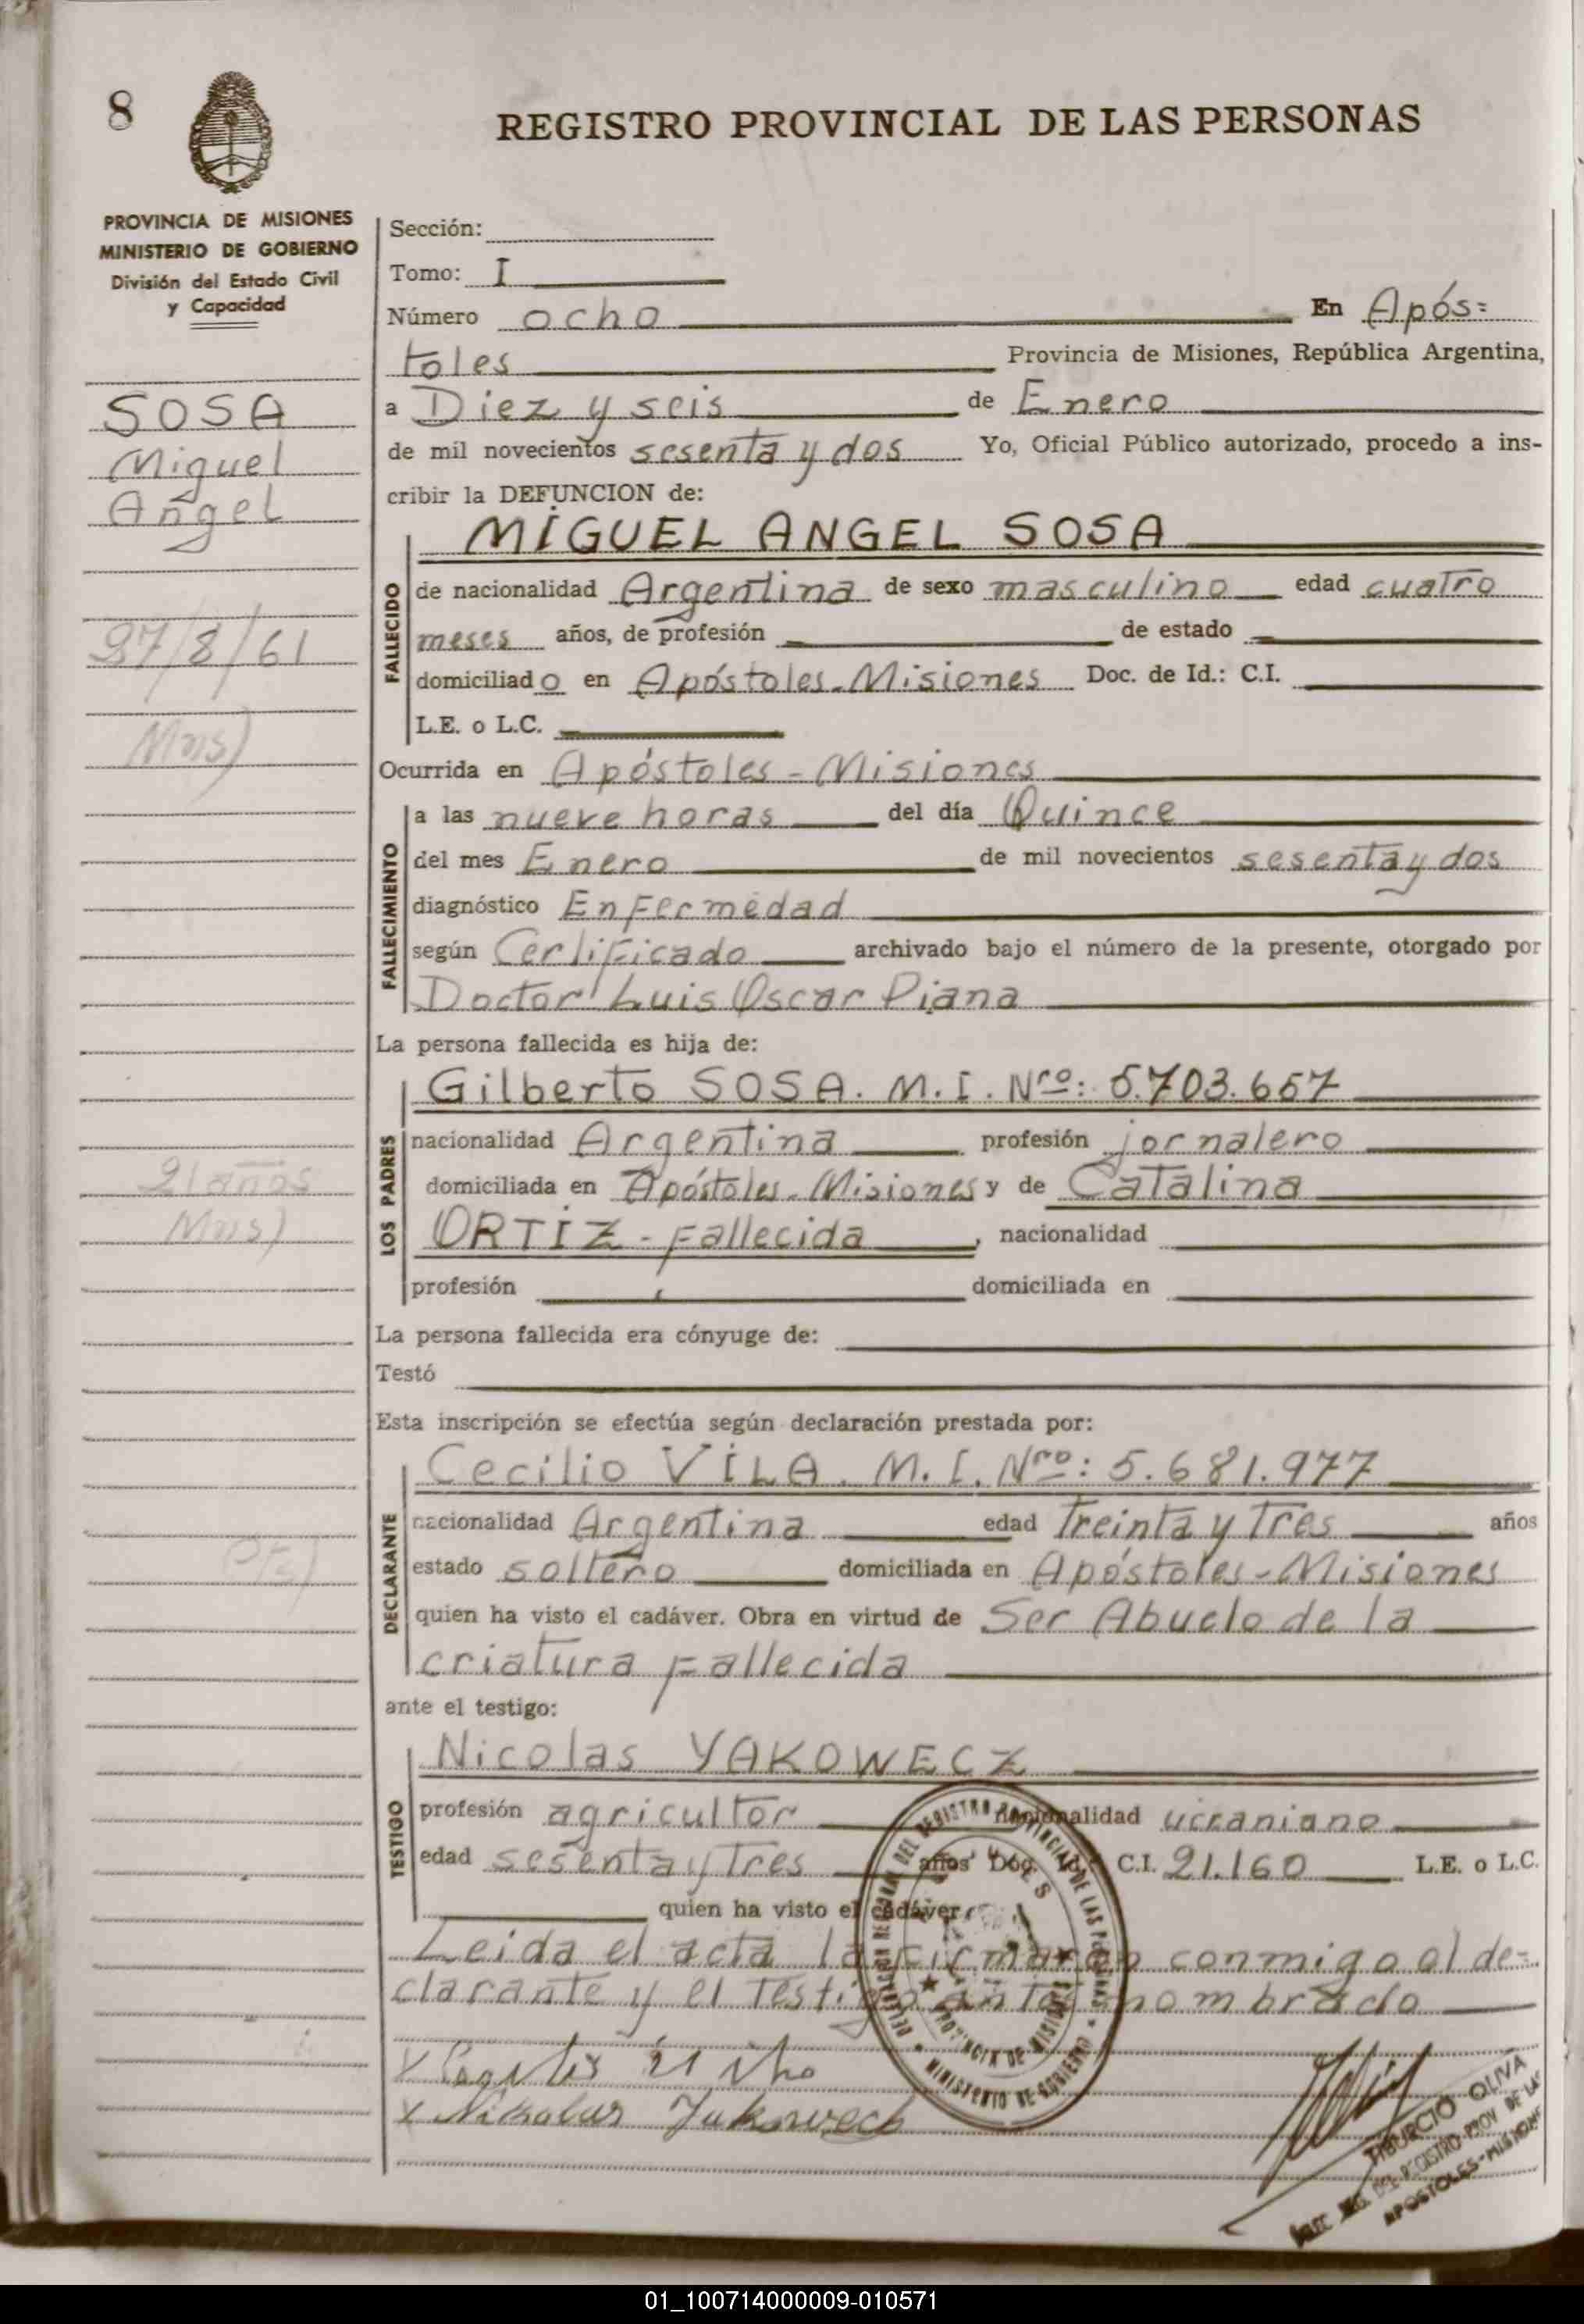 8
REGISTRO PROVINCIAL DE LAS PERSONAS
PROVINCIA DE MISIONES
MINISTERIO DE GOBIERNO
División del Estado Civil
y Capacidad
SOSA
Miguel
Angel
27/8/61
21 años
Sección:
Tomo: I
Número ocho En Após=
toles Provincia de Misiones, República Argentina,
a Diez y seis de Enero
de mil novecientos sesenta y dos Yo, Oficial Público autorizado, procedo a ins-
cribir la DEFUNCION de:
FALLECIDO
MIGUEL ANGEL SOSA
de nacionalidad Argentina de sexo masculino edad cuatro
meses años, de profesión de estado
domiciliado en Apóstoles-Misiones Doc. de Id.: C.I.
L.E. o L.C.
Ocurrida en Apóstoles-Misiones
FALLECIMIENTO
a las nueve horas del día Quince
del mes Enero de mil novecientos sesenta y dos
diagnóstico Enfermedad
según Certificado archivado bajo el número de la presente, otorgado por
Doctor Luis Oscar Piana
La persona fallecida es hija de:
LOS PADRES
Gilberto SOSA. M.I. Nro: 5.703.657
nacionalidad Argentina profesión jornalero
domiciliada en Apóstoles-Misiones y de Catalina
ORTIZ-Fallecida, nacionalidad
profesión domiciliada en
La persona fallecida era cónyuge de:
Testó
Esta inscripción se efectúa según declaración prestada por:
DECLARANTE
Cecilio VILA. M.I. Nro: 5.681.977
nacionalidad Argentina edad Treinta y Tres años
estado soltero domiciliada en Apóstoles-Misiones
quien ha visto el cadáver. Obra en virtud de Ser Abuelo de la
criatura Fallecida
ante el testigo:
TESTIGO
Nicolas YAKOWECZ
profesión agricultor nacionalidad ucraniano
edad sesenta y Tres años Doc. Id. C.I. 21.160 L.E. o L.C.
quien ha visto el cadáver.
Leida el acta la firmaron conmigo el de=
clarante y el Testigo antes nombrado
REGISTRO PROVINCIAL DE LAS PERSONAS
PROVINCIA DE MISIONES
MINISTERIO DE GOBIERNO
TIBURCIO OLIVA
REGISTRO PROV. DE LAS
APOSTOLES-MISIONES
01_100714000009-010571